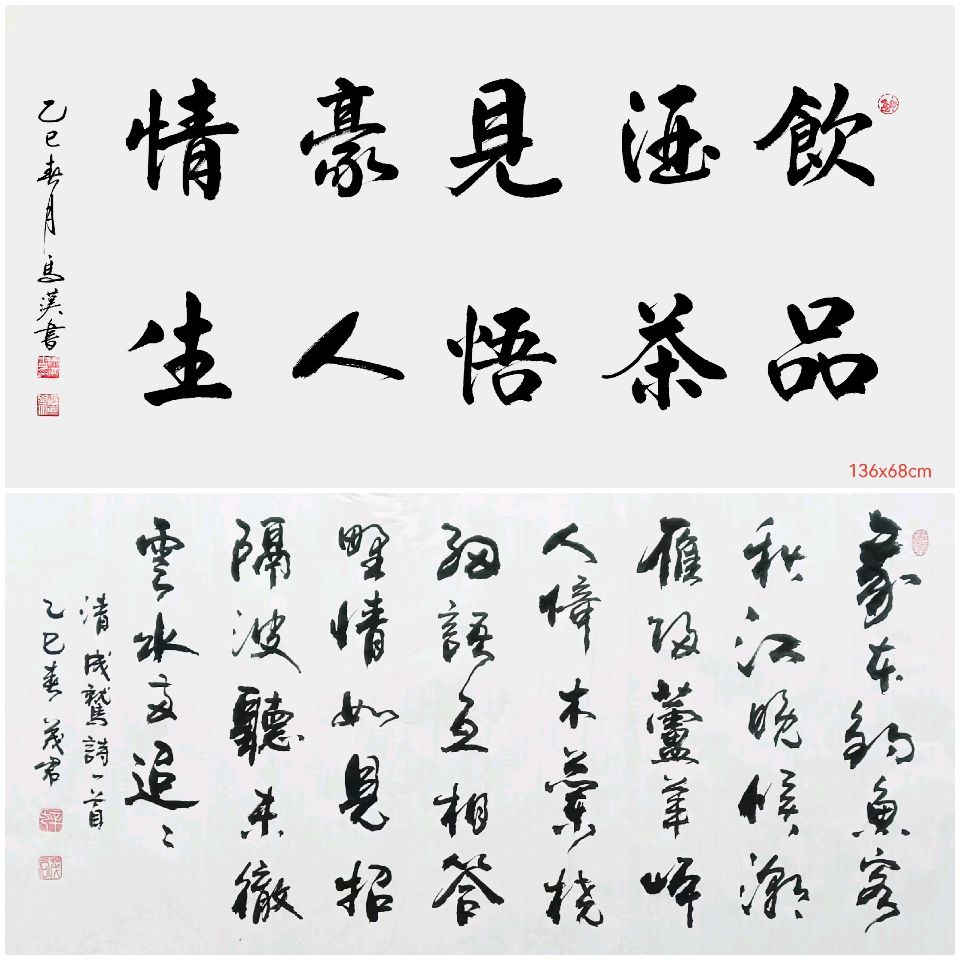 飲酒見豪情
品茶悟人生
乙巳春月馬漢書
136x68cm
家本釣魚客
秋江晚候潮
雁歸蘆華
人倚木蘭橈
細語互相答
野情如見招
隔波聽未徹
雲水
清成鷲詩一首
乙巳春茂君